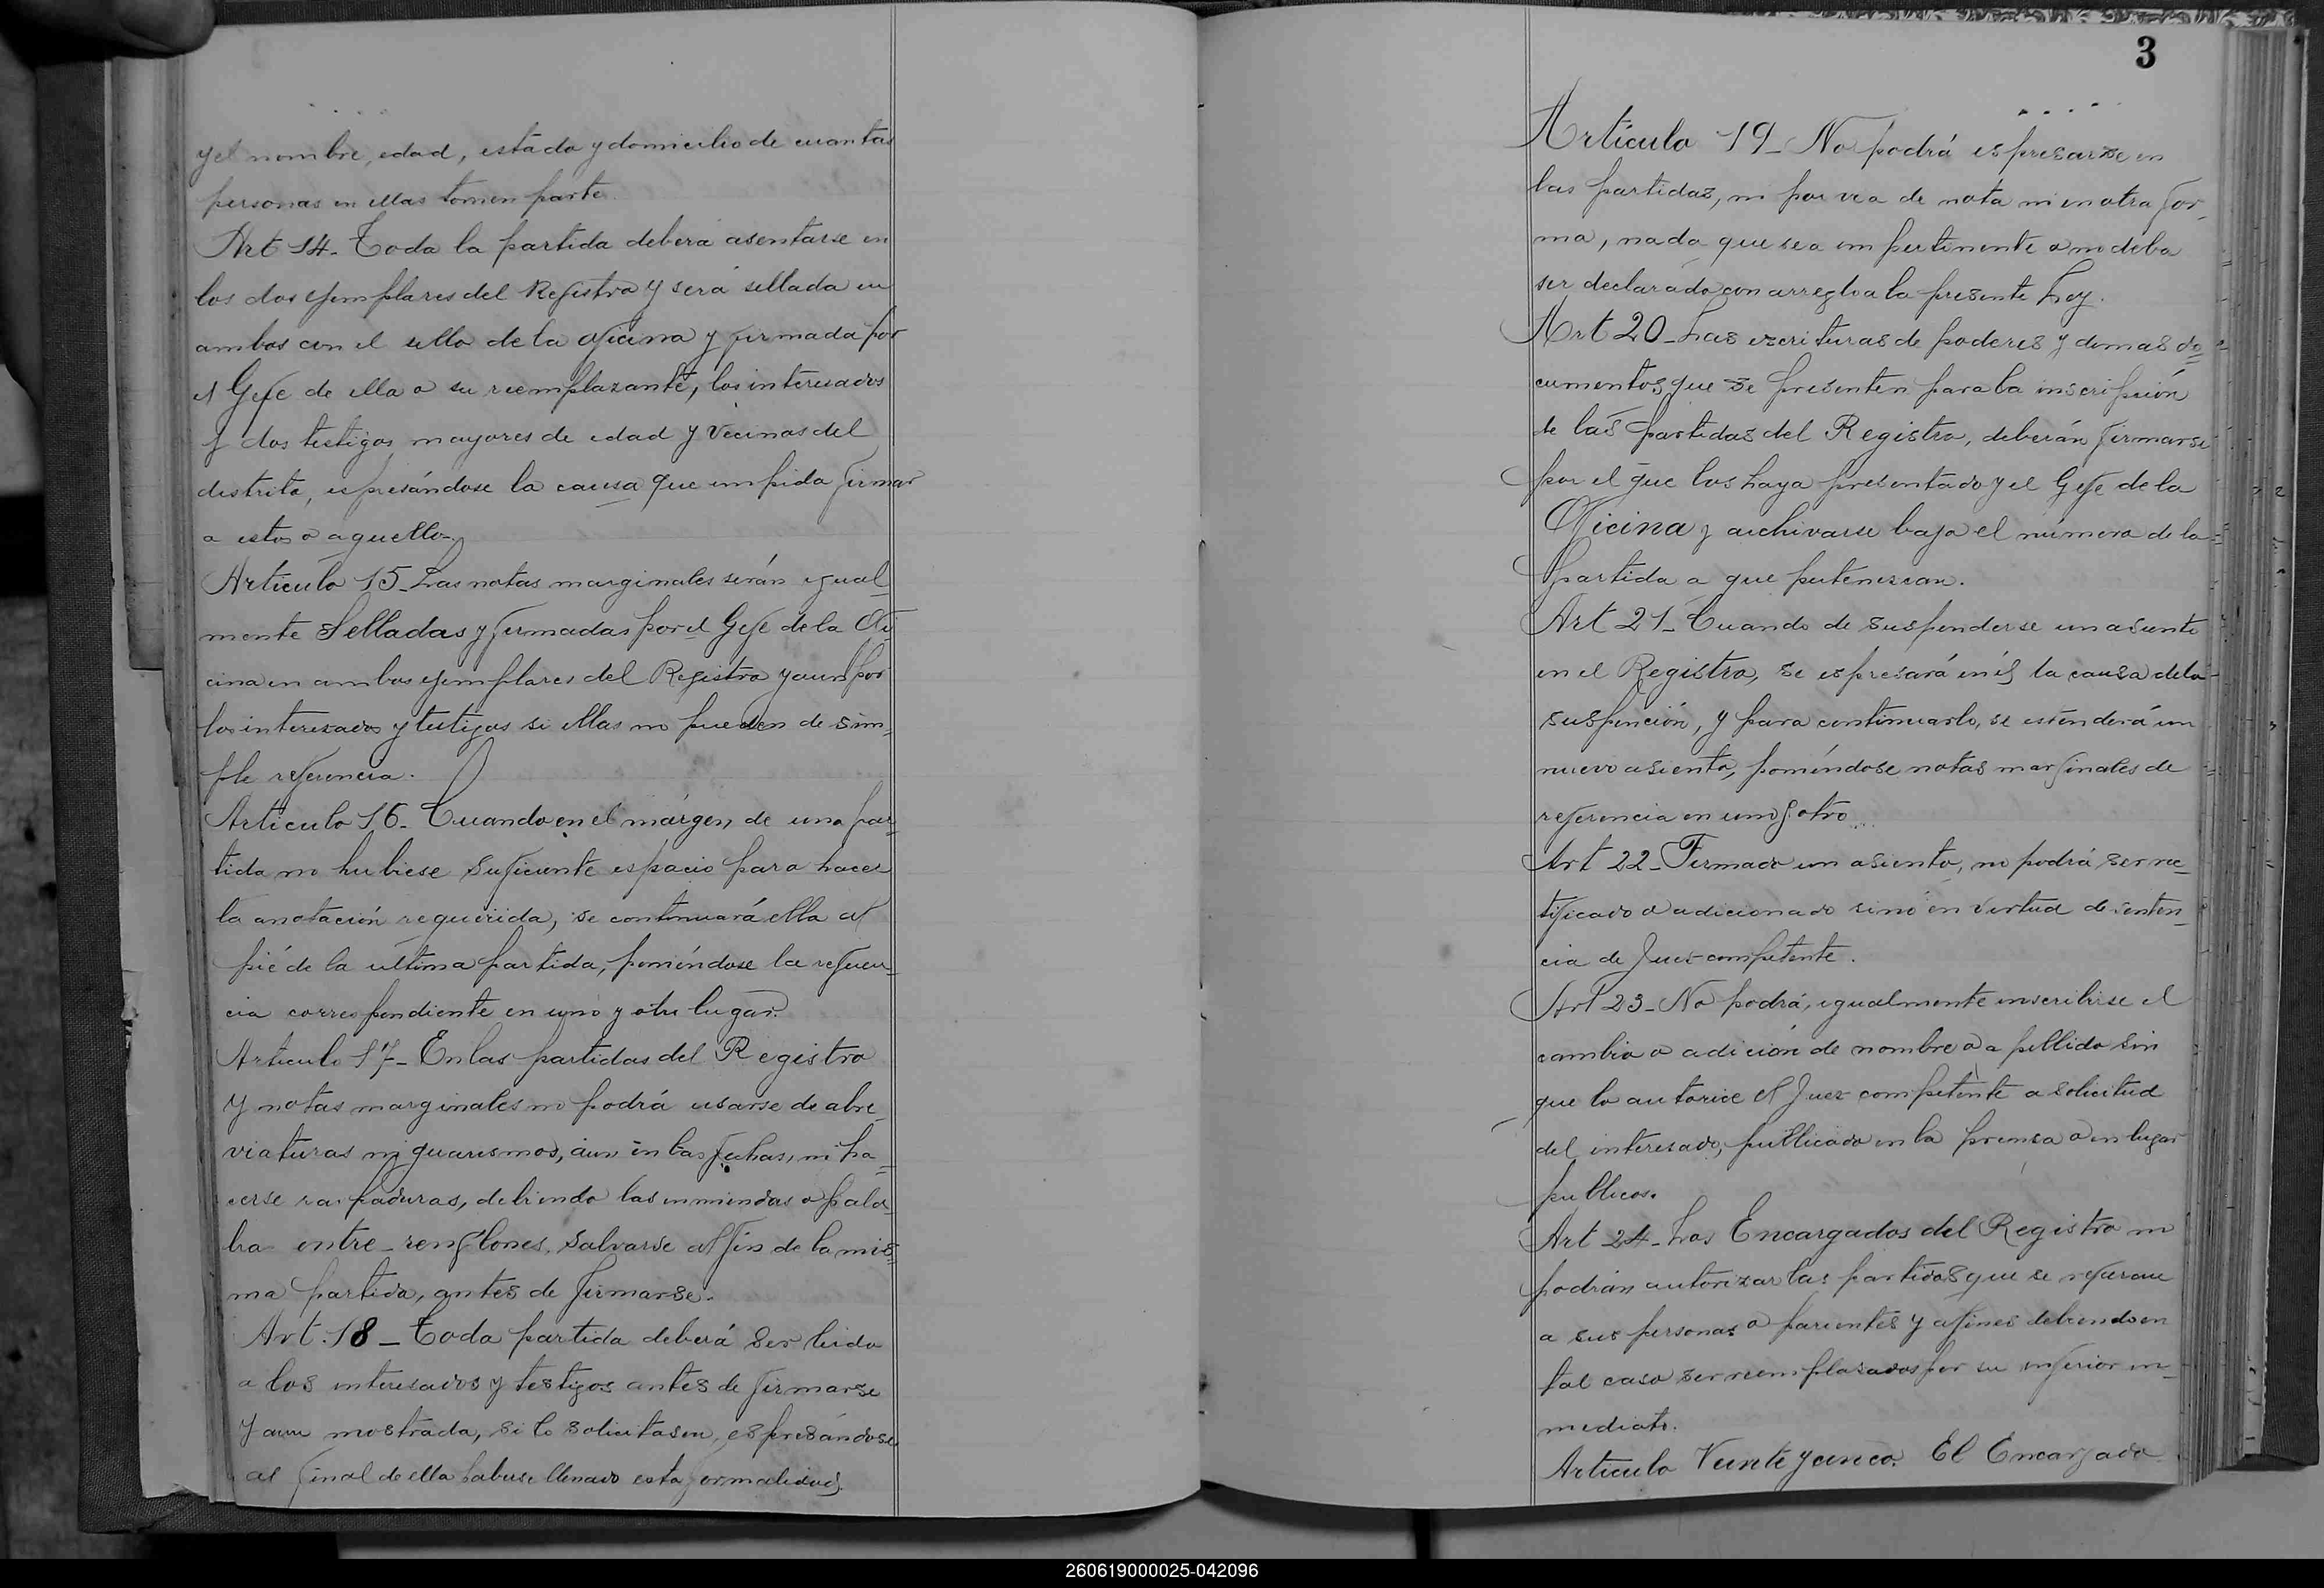 y el nombre, edad, estado y domicilio de cuantas
personas en ellas tomen parte.
Art 14 - Toda la partida deberá asentarse en
los dos ejemplares del Registro y será sellada en
ambos con el sello de la oficina y firmada por
el Gefe de ella o su reemplazante, los interesados
y dos testigos mayores de edad y vecinos del
distrito, espresándose la causa que impida firmar
a estos o aquellos.
Articulo 15 - Las notas marginales serán igual-
mente Selladas y firmadas por el Gefe de la Ofi-
cina en ambos ejemplares del Registro y aun por
los interesados y testigos si ellas no pueden de sim-
ple referencia.
Articulo 16 - Cuando en el márgen de una par-
tida no hubiese suficiente espacio para hacer
la anotación requerida, se continuará ella al
pié de la última partida, poniéndose la referen-
cia correspondiente en uno y otro lugar.
Articulo 17 - En las partidas del Registro
y notas marginales no podrá usarse de abre-
viaturas ni guarismos, aun en las fechas, ni ha-
cerse raspaduras, debiendo las enmiendas o pala-
bra entre-renglones, salvarse al fin de la mis-
ma partida, antes de firmarse.
Art. 18 - Toda partida deberá ser leida
a los interesados y testigos antes de firmarse
y aun mostrada, si lo solicitasen, espresándose
al final de ella haberse llenado esta formalidad.
3
Artículo 19 - No podrá espresarse en
las partidas, ni por via de nota ni en otra for-
ma, nada que sea impertinente o no deba
ser declarado con arreglo a la presente Ley.
Art 20 - Las escrituras de poderes y demas do-
cumentos que se presenten para la inscripción
de las partidas del Registro, deberán firmarse
por el que los haya presentado y el Gefe de la
Oficina y archivarse bajo el número de la
partida a que pertenezcan.
Art 21 - Cuando de suspenderse un asiento
en el Registro, se espresará en él la causa de la
suspención, y para continuarlo, se estenderá un
nuevo asiento, poniéndose notas marginales de
referencia en uno y otro.
Art 22 - Firmado un asiento, no podrá ser rec-
tificado o adicionado sinó en virtud de senten-
cia de Juez competente.
Art 23 - No podrá, igualmente inscribirse el
cambio o adición de nombre o apellido sin
que lo autorice el Juez competente a solicitud
del interesado, publicado en la prensa o en lugar
publicos.
Art 24 - Los Encargados del Registro no
podrán autorizar las partidas que se refieran
a sus personas o parientes y afines debiendo en
tal caso ser reemplasados por su inferior in-
mediato.
Articulo Veinte y cinco. El Encargado
260619000025-042096